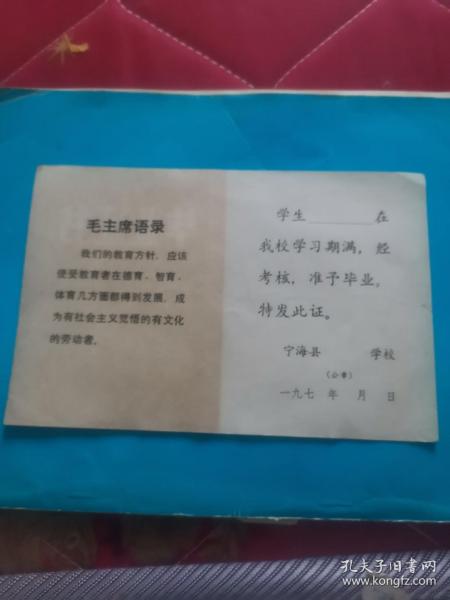 毛主席语录
我们的教育方针，应该
使受教育者在德育、智育、
体育几方面都得到发展，成
为有社会主义觉悟的有文化
的劳动者。
学生________在
我校学习期满，经
考核，准予毕业。
特发此证。
宁海县 学校
(公章)
一九七 年 月 日
孔夫子旧书网
www.kongfz.com